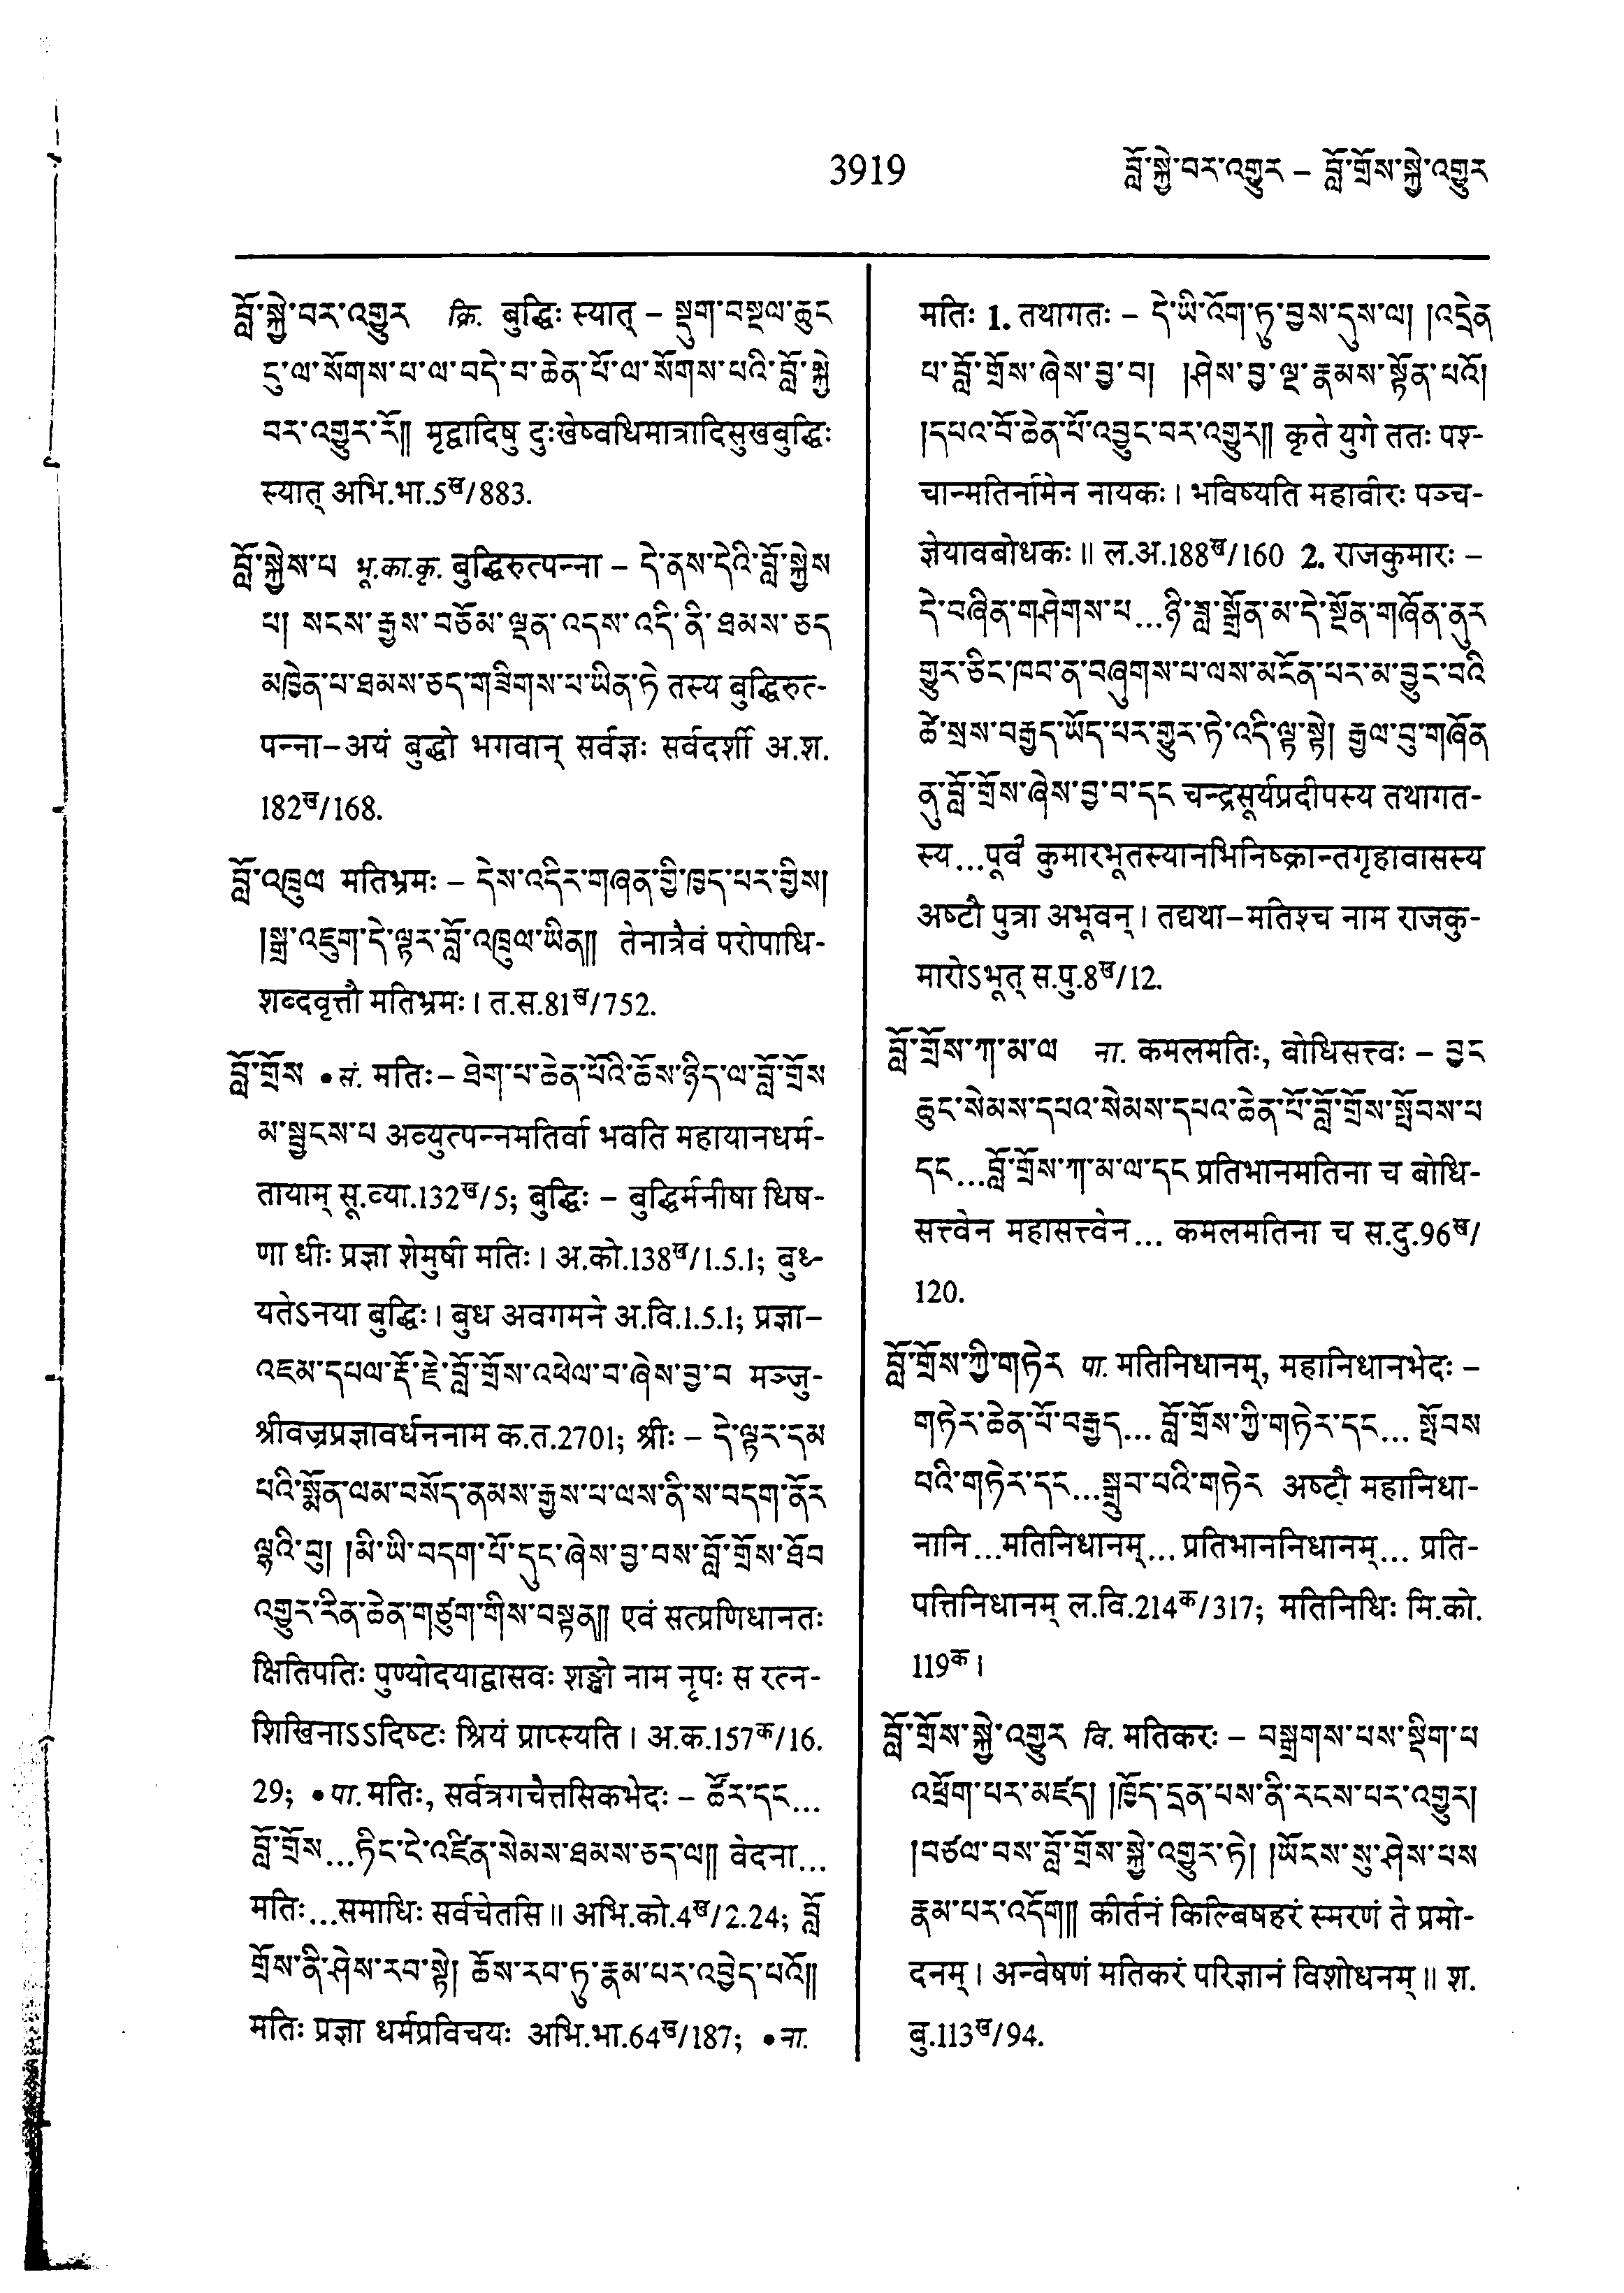 3919
བློ་སྐྱེ་བར་འགྱུར – བློ་གྲོས་སྐྱེ་འགྱུར
བློ་སྐྱེ་བར་འགྱུར क्रि. बुद्धिः स्यात् – སྡུག་བསྔལ་ཆུང
ངུ་ལ་སོགས་པ་ལ་བདེ་བ་ཆེན་པོ་ལ་སོགས་པའི་བློ་སྐྱེ
བར་འགྱུར་རོ།། मृद्वादिषु दुःखेष्वधिमात्रादिसुखबुद्धिः
स्यात् अभि.भा.5ख/883.
བློ་སྐྱེས་པ भू.का.कृ. बुद्धिरुत्पन्ना – དེ་ནས་དེའི་བློ་སྐྱེས
པ། སངས་རྒྱས་བཅོམ་ལྡན་འདས་འདི་ནི་ཐམས་ཅད
མཁྱེན་པ་ཐམས་ཅད་གཟིགས་པ་ཡིན་ཏེ तस्य बुद्धिरुत्-
पन्ना–अयं बुद्धो भगवान् सर्वज्ञः सर्वदर्शी अ.श.
182ख/168.
བློ་འཁྲུལ मतिभ्रमः – དེས་འདིར་གཞན་གྱི་ཁྱད་པར་གྱིས།
།སྒྲ་འཇུག་དེ་ལྟར་བློ་འཁྲུལ་ཡིན།། तेनात्रैवं परोपाधि-
शब्दवृत्तौ मतिभ्रमः। त.स.81ख/752.
བློ་གྲོས • सं. मतिः– ཐེག་པ་ཆེན་པོའི་ཆོས་ཉིད་ལ་བློ་གྲོས
མ་སྦྱངས་པ अव्युत्पन्नमतिर्वा भवति महायानधर्म-
तायाम् सू.व्या.132ख/5; बुद्धिः – बुद्धिर्मनीषा धिष-
णा धीः प्रज्ञा शेमुषी मतिः। अ.को.138ख/1.5.1; बुध्-
यतेऽनया बुद्धिः। बुध अवगमने अ.वि.1.5.1; प्रज्ञा–
འཇམ་དཔལ་རྡོ་རྗེ་བློ་གྲོས་འཕེལ་བ་ཞེས་བྱ་བ मञ्जु-
श्रीवज्रप्रज्ञावर्धननाम क.त.2701; श्रीः – དེ་ལྟར་དམ
པའི་སྨོན་ལམ་བསོད་ནམས་རྒྱས་པ་ལས་ནི་ས་བདག་ནོར
ལྷའི་བུ། །མི་ཡི་བདག་པོ་དུང་ཞེས་བྱ་བས་བློ་གྲོས་ཐོབ
འགྱུར་རིན་ཆེན་གཙུག་གིས་བསྟན།། एवं सत्प्रणिधानतः
क्षितिपतिः पुण्योदयाद्वासवः शङ्खो नाम नृपः स रत्न-
शिखिनाऽऽदिष्टः श्रियं प्राप्स्यति। अ.क.157क/16.
29; • पा. मतिः, सर्वत्रगचैत्तसिकभेदः – ཚོར་དང...
བློ་གྲོས...ཏིང་ངེ་འཛིན་སེམས་ཐམས་ཅད་ལ།། वेदना...
मतिः...समाधिः सर्वचेतसि॥ अभि.को.4ख/2.24; བློ
གྲོས་ནི་ཤེས་རབ་སྟེ། ཆོས་རབ་ཏུ་རྣམ་པར་འབྱེད་པའོ།།
मतिः प्रज्ञा धर्मप्रविचयः अभि.भा.64ख/187; • ना.
मतिः 1. तथागतः – དེ་ཡི་འོག་ཏུ་བྱས་དུས་ལ། །འདྲེན
པ་བློ་གྲོས་ཞེས་བྱ་བ། །ཤེས་བྱ་ལྔ་རྣམས་སྟོན་པའོ།
།དཔའ་བོ་ཆེན་པོ་འབྱུང་བར་འགྱུར།། कृते युगे ततः पश्-
चान्मतिर्नामेन नायकः। भविष्यति महावीरः पञ्च-
ज्ञेयावबोधकः॥ ल.अ.188ख/160 2. राजकुमारः –
དེ་བཞིན་གཤེགས་པ...ཉི་ཟླ་སྒྲོན་མ་དེ་སྔོན་གཞོན་ནུར
གྱུར་ཅིང་ཁབ་ན་བཞུགས་པ་ལས་མངོན་པར་མ་བྱུང་བའི
ཚེ་སྲས་བརྒྱད་ཡོད་པར་གྱུར་ཏེ་འདི་ལྟ་སྟེ། རྒྱལ་བུ་གཞོན
ནུ་བློ་གྲོས་ཞེས་བྱ་བ་དང चन्द्रसूर्यप्रदीपस्य तथागत-
स्य...पूर्वं कुमारभूतस्यानभिनिष्क्रान्तगृहावासस्य
अष्टौ पुत्रा अभूवन्। तद्यथा–मतिश्च नाम राजकु-
मारोऽभूत् स.पु.8ख/12.
བློ་གྲོས་ཀ་མ་ལ ना. कमलमतिः, बोधिसत्त्वः – བྱང
ཆུང་སེམས་དཔའ་སེམས་དཔའ་ཆེན་པོ་བློ་གྲོས་སྤོབས་པ
དང...བློ་གྲོས་ཀ་མ་ལ་དང प्रतिभानमतिना च बोधि-
सत्त्वेन महासत्त्वेन... कमलमतिना च स.दु.96ख/
120.
བློ་གྲོས་ཀྱི་གཏེར पा. मतिनिधानम्, महानिधानभेदः –
གཏེར་ཆེན་པོ་བརྒྱད... བློ་གྲོས་ཀྱི་གཏེར་དང... སྤོབས
པའི་གཏེར་དང...སྒྲུབ་པའི་གཏེར अष्टौ महानिधा-
नानि...मतिनिधानम्... प्रतिभाननिधानम्... प्रति-
पत्तिनिधानम् ल.वि.214क/317; मतिनिधिः मि.को.
119क।
བློ་གྲོས་སྐྱེ་འགྱུར वि. मतिकरः – བསྒྲགས་པས་སྡིག་པ
འཕྲོག་པར་མཛད། །ཁྱོད་དྲན་པས་ནི་རངས་པར་འགྱུར།
།བཙལ་བས་བློ་གྲོས་སྐྱེ་འགྱུར་ཏེ། །ཡོངས་སུ་ཤེས་པས
རྣམ་པར་འདོག།། कीर्तनं किल्बिषहरं स्मरणं ते प्रमो-
दनम्। अन्वेषणं मतिकरं परिज्ञानं विशोधनम्॥ श.
बु.113ख/94.